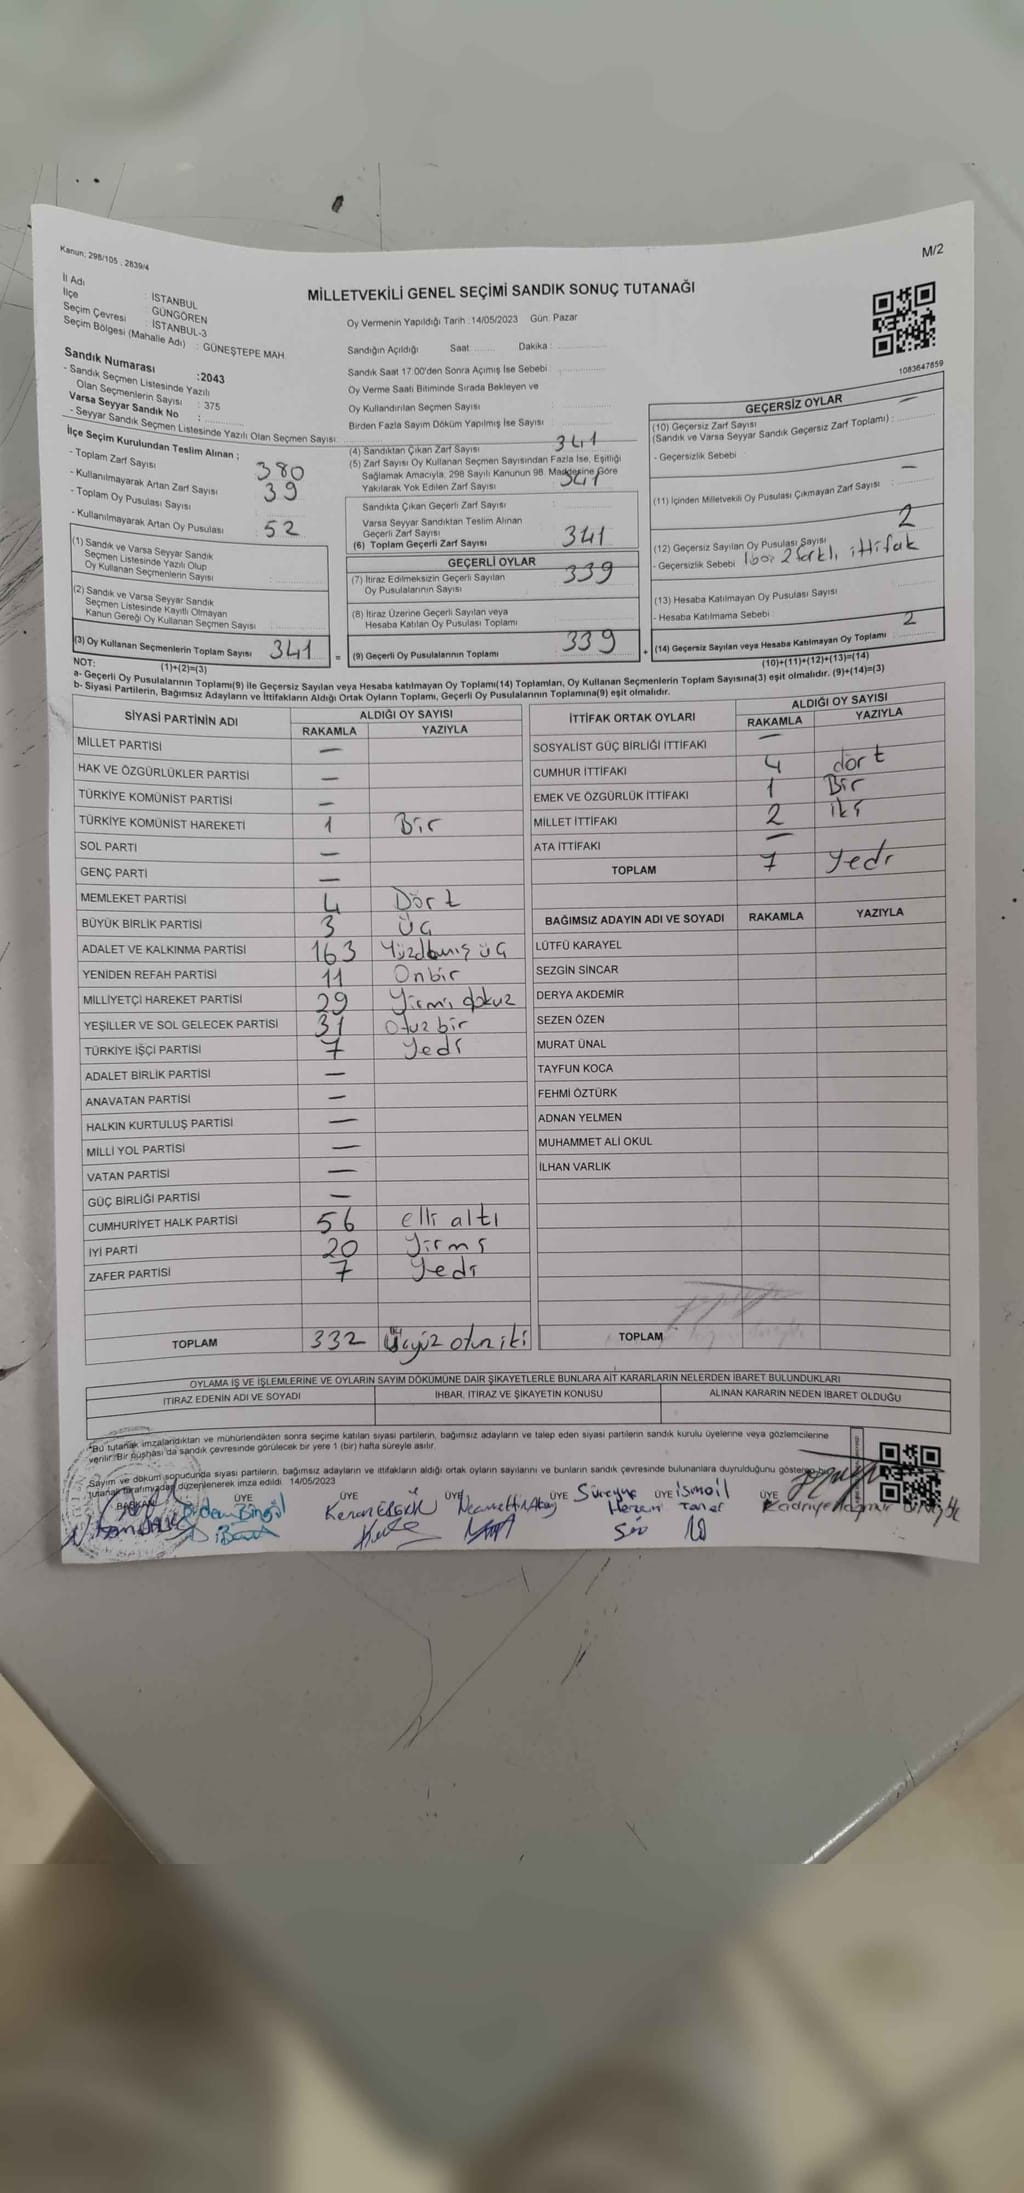 Kanun: 298/105 , 2839/4
M/2
MİLLETVEKİLİ GENEL SEÇİMİ SANDIK SONUÇ TUTANAĞI
İl Adı : İSTANBUL
İlçe : GÜNGÖREN
Seçim Çevresi : İSTANBUL-3
Seçim Bölgesi (Mahalle Adı) : GÜNEŞTEPE MAH.
Sandık Numarası :2043
- Sandık Seçmen Listesinde Yazılı
Olan Seçmenlerin Sayısı : 375
Varsa Seyyar Sandık No :
- Seyyar Sandık Seçmen Listesinde Yazılı Olan Seçmen Sayısı :
İlçe Seçim Kurulundan Teslim Alınan ;
- Toplam Zarf Sayısı 380
- Kullanılmayarak Artan Zarf Sayısı 39
- Toplam Oy Pusulası Sayısı
- Kullanılmayarak Artan Oy Pusulası 52
(1) Sandık ve Varsa Seyyar Sandık
Seçmen Listesinde Yazılı Olup
Oy Kullanan Seçmenlerin Sayısı :
(2) Sandık ve Varsa Seyyar Sandık
Seçmen Listesinde Kayıtlı Olmayan
Kanun Gereği Oy Kullanan Seçmen Sayısı :
(3) Oy Kullanan Seçmenlerin Toplam Sayısı 341
(1)+(2)=(3)
Oy Vermenin Yapıldığı Tarih :14/05/2023 Gün: Pazar
Sandığın Açıldığı Saat ....... Dakika :
Sandık Saat 17:00'den Sonra Açımış İse Sebebi :
Oy Verme Saati Bitiminde Sırada Bekleyen ve
Oy Kullandırılan Seçmen Sayısı :
Birden Fazla Sayım Döküm Yapılmış İse Sayısı :
(4) Sandıktan Çıkan Zarf Sayısı 341
(5) Zarf Sayısı Oy Kullanan Seçmen Sayısından Fazla İse, Eşitliği
Sağlamak Amacıyla; 298 Sayılı Kanunun 98. Maddesine Göre
Yakılarak Yok Edilen Zarf Sayısı 341
Sandıkta Çıkan Geçerli Zarf Sayısı
Varsa Seyyar Sandıktan Teslim Alınan
Geçerli Zarf Sayısı
(6) Toplam Geçerli Zarf Sayısı 341
GEÇERLİ OYLAR
(7) İtiraz Edilmeksizin Geçerli Sayılan
Oy Pusulalarının Sayısı 339
(8) İtiraz Üzerine Geçerli Sayılan veya
Hesaba Katılan Oy Pusulası Toplamı :
= (9) Geçerli Oy Pusulalarının Toplamı 339 +
1083647859
GEÇERSİZ OYLAR
(10) Geçersiz Zarf Sayısı —
(Sandık ve Varsa Seyyar Sandık Geçersiz Zarf Toplamı) :
- Geçersizlik Sebebi :
(11) İçinden Milletvekili Oy Pusulası Çıkmayan Zarf Sayısı : —
(12) Geçersiz Sayılan Oy Pusulası Sayısı 2
- Geçersizlik Sebebi 2 farklı ittifak
(13) Hesaba Katılmayan Oy Pusulası Sayısı
- Hesaba Katılmama Sebebi
(14) Geçersiz Sayılan veya Hesaba Katılmayan Oy Toplamı 2
(10)+(11)+(12)+(13)=(14)
NOT:
a- Geçerli Oy Pusulalarının Toplamı(9) ile Geçersiz Sayılan veya Hesaba katılmayan Oy Toplamı(14) Toplamları, Oy Kullanan Seçmenlerin Toplam Sayısına(3) eşit olmalıdır. (9)+(14)=(3)
b- Siyasi Partilerin, Bağımsız Adayların ve İttifakların Aldığı Ortak Oyların Toplamı, Geçerli Oy Pusulalarının Toplamına(9) eşit olmalıdır.
SİYASİ PARTİNİN ADI ALDIĞI OY SAYISI
RAKAMLA YAZIYLA
MİLLET PARTİSİ —
HAK VE ÖZGÜRLÜKLER PARTİSİ —
TÜRKİYE KOMÜNİST PARTİSİ —
TÜRKİYE KOMÜNİST HAREKETİ 1 Bir
SOL PARTİ —
GENÇ PARTİ —
MEMLEKET PARTİSİ 4 Dört
BÜYÜK BİRLİK PARTİSİ 3 Üç
ADALET VE KALKINMA PARTİSİ 163 Yüzatmış üç
YENİDEN REFAH PARTİSİ 11 Onbir
MİLLİYETÇİ HAREKET PARTİSİ 29 Yirmi dokuz
YEŞİLLER VE SOL GELECEK PARTİSİ 31 Otuz bir
TÜRKİYE İŞÇİ PARTİSİ 7 Yedi
ADALET BİRLİK PARTİSİ —
ANAVATAN PARTİSİ —
HALKIN KURTULUŞ PARTİSİ —
MİLLİ YOL PARTİSİ —
VATAN PARTİSİ —
GÜÇ BİRLİĞİ PARTİSİ —
CUMHURİYET HALK PARTİSİ 56 elli altı
İYİ PARTİ 20 Yirmi
ZAFER PARTİSİ 7 Yedi
TOPLAM 332 Üçyüz otuz iki
İTTİFAK ORTAK OYLARI ALDIĞI OY SAYISI
RAKAMLA YAZIYLA
SOSYALİST GÜÇ BİRLİĞİ İTTİFAKI —
CUMHUR İTTİFAKI 4 dört
EMEK VE ÖZGÜRLÜK İTTİFAKI 1 Bir
MİLLET İTTİFAKI 2 iki
ATA İTTİFAKI —
TOPLAM 7 Yedi
BAĞIMSIZ ADAYIN ADI VE SOYADI RAKAMLA YAZIYLA
LÜTFÜ KARAYEL
SEZGİN SİNCAR
DERYA AKDEMİR
SEZEN ÖZEN
MURAT ÜNAL
TAYFUN KOCA
FEHMİ ÖZTÜRK
ADNAN YELMEN
MUHAMMET ALİ OKUL
İLHAN VARLIK
TOPLAM
OYLAMA İŞ VE İŞLEMLERİNE VE OYLARIN SAYIM DÖKÜMÜNE DAİR ŞİKAYETLERLE BUNLARA AİT KARARLARIN NELERDEN İBARET BULUNDUKLARI
İTİRAZ EDENİN ADI VE SOYADI İHBAR, İTİRAZ VE ŞİKAYETİN KONUSU ALINAN KARARIN NEDEN İBARET OLDUĞU
*Bu tutanak imzalandıktan ve mühürlendikten sonra seçime katılan siyasi partilerin, bağımsız adayların ve talep eden siyasi partilerin sandık kurulu üyelerine veya gözlemcilerine
verilir. Bir nüshası da sandık çevresinde görülecek bir yere 1 (bir) hafta süreyle asılır.
Sayım ve döküm sonucunda siyasi partilerin, bağımsız adayların ve ittifakların aldığı ortak oyların sayılarını ve bunların sandık çevresinde bulunanlara duyrulduğunu gösteren
tutanak tarafımızdan düzenlenerek imza edildi. 14/05/2023
BAŞKAN ÜYE ÜYE ÜYE ÜYE ÜYE ÜYE
Didem Bingöl Kenan Süreyya İsmail
Taner